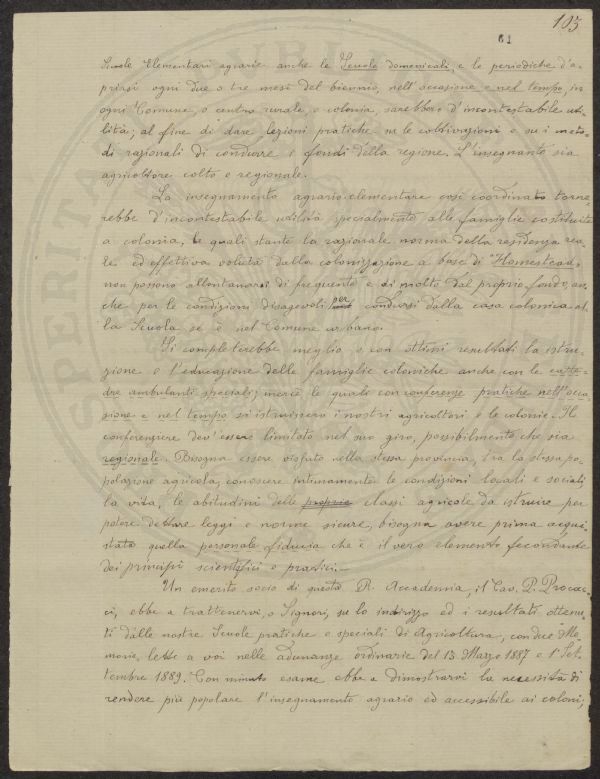 103
61
Scuole Elementari agrarie anche le Scuole domenicali, e le periodiche d'a-
prirsi ogni due o tre mesi del biennio, nell'occasione e nel tempo, in
ogni Comune, o centro rurale, o colonia, sarebbero d'incontestabile uti-
lità; al fine di dare lezioni pratiche su le coltivazioni e su i meto-
di razionali di condurre i fondi della regione. L'insegnante sia
agricoltore colto e regionale.
La insegnamento agrario elementare così coordinato torne-
rebbe d'incontestabile utilità specialmente alle famiglie costituite
a colonia, le quali stante la razionale norma della residenza rea-
le ed effettiva voluta dalla colonizzazione a base di "Homestead"
non possono allontanarsi di frequente e di molto dal proprio fondo, an-
che per le condizioni disagevoli per condursi dalla casa colonica al-
la Scuola se è nel Comune urbano.
Si completerebbe meglio e con ottimi resultati la istru-
zione e l'educazione delle famiglie coloniche anche con le catte-
dre ambulanti speciali; mercè le quali con conferenze pratiche nell'occa-
sione e nel tempo si istruissero i nostri agricoltori e le colonie. Il
conferenziere dev'essere limitato nel suo giro, possibilmente che sia
regionale. Bisogna essere vissuto nella stessa provincia, tra la stessa po-
polazione agricola, conoscere intimamente le condizioni locali e sociali
la vita, le abitudini delle proprie classi agricole da istruire per
potere dettare leggi e norme sicure, bisogna avere prima acqui-
stata quella personale fiducia che è il vero elemento fecondante
dei principî scientifici e pratici.
Un emerito socio di questa R. Accademia, il Cav. P. Procac-
ci, ebbe a trattenervi, o Signori, su lo indirizzo ed i resultati ottenu-
ti dalle nostre Scuole pratiche e speciali di Agricoltura, con due Me-
morie, lette a voi nelle adunanze ordinarie del 13 Marzo 1887 e 1° Set-
tembre 1889. Con minuto esame ebbe a dimostrarvi la necessità di
rendere più popolare l'insegnamento agrario ed accessibile ai coloni,